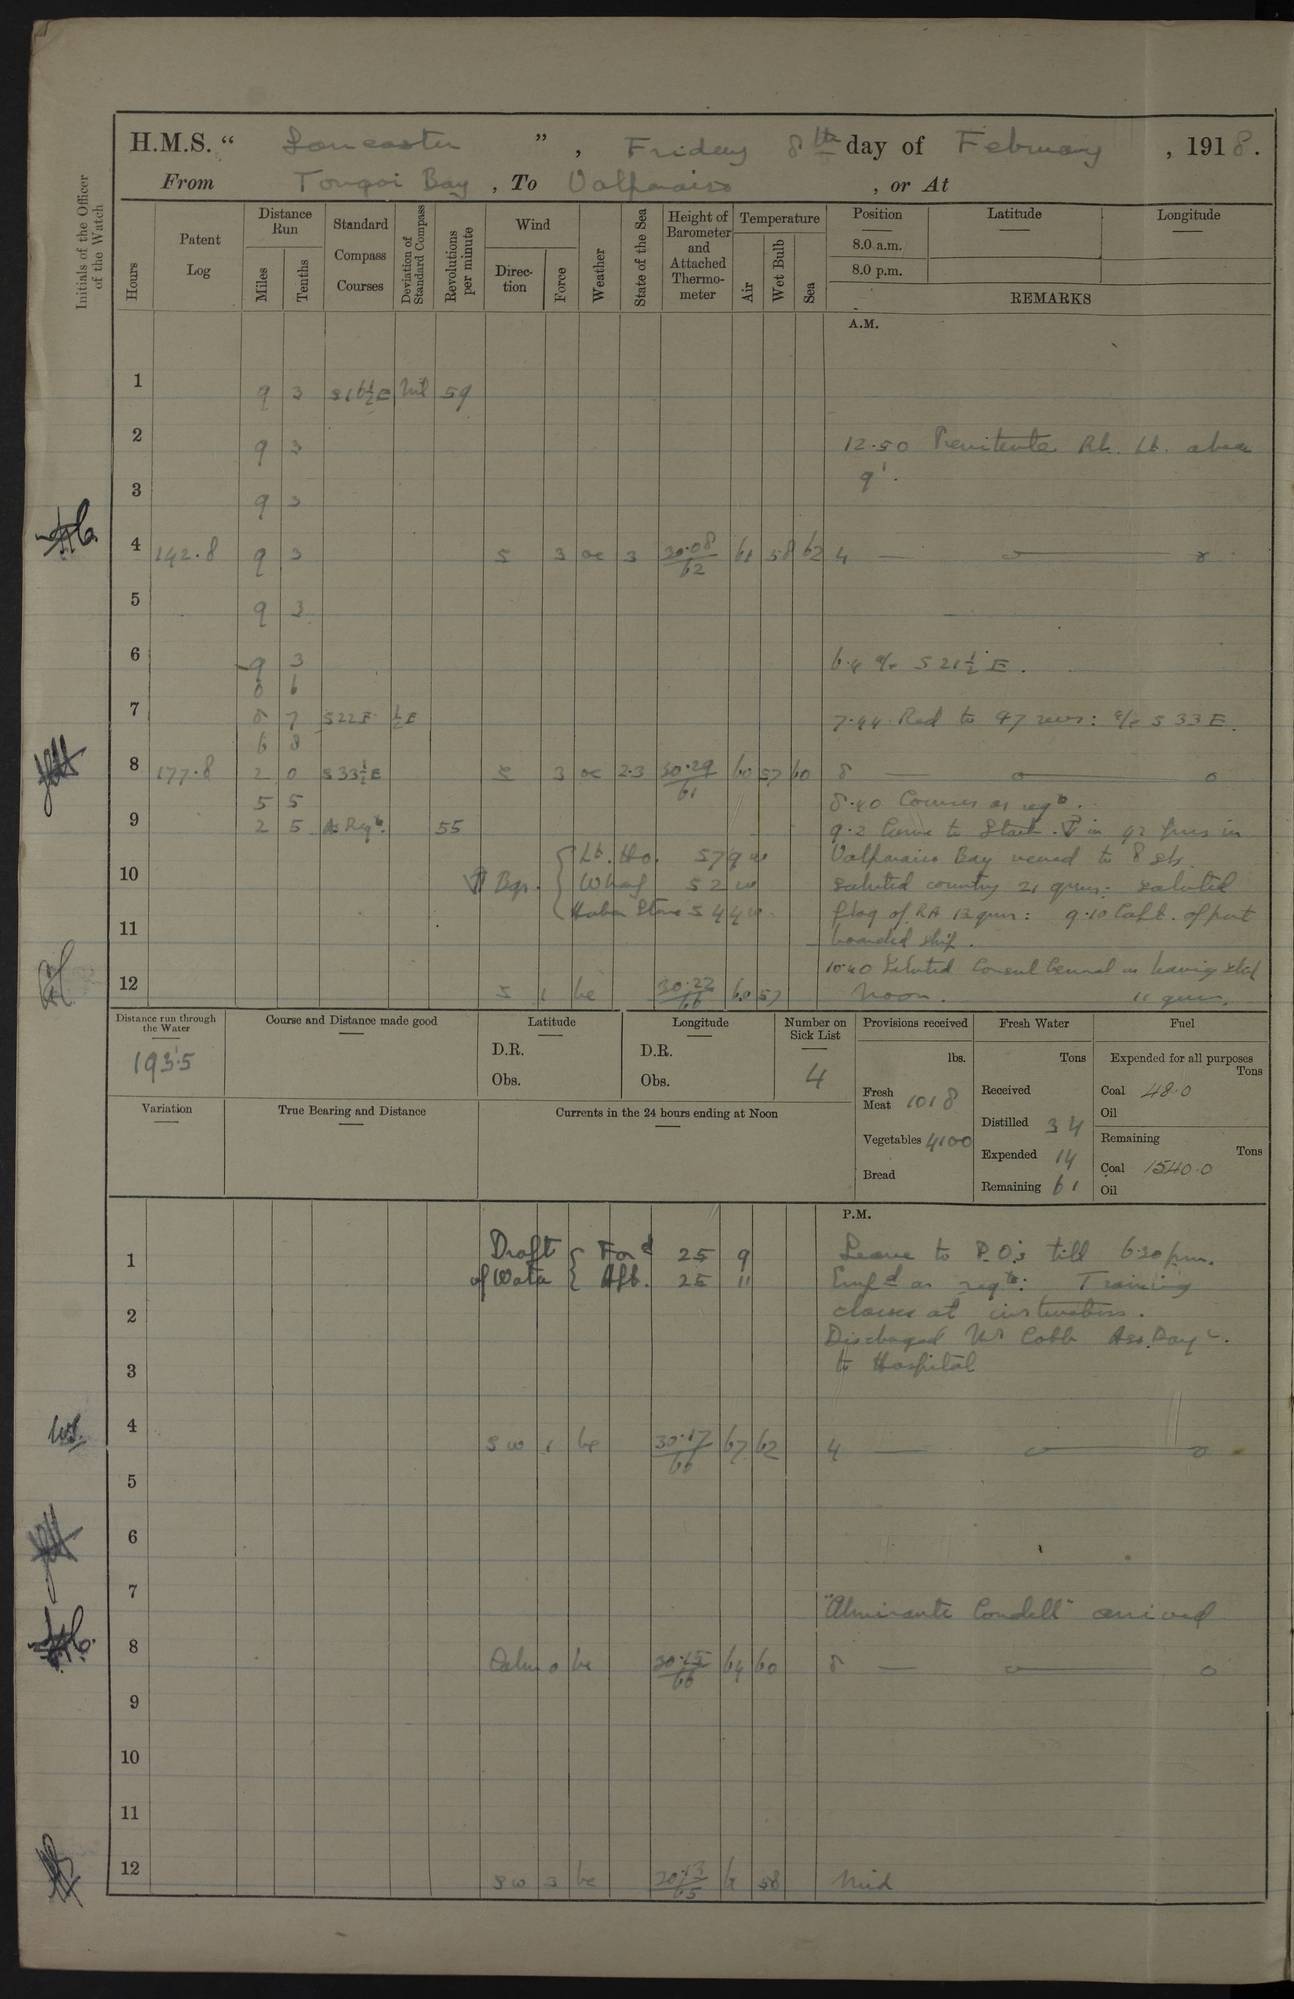 H.M.S. “ Lancaster ” , Friday 8th day of February , 1918.
From Tongoi Bay , To Valparaiso , or At
Initials of the Officer of the Watch
Hours
Patent Log
Distance Run
Miles
Tenths
Standard Compass Courses
Deviation of Standard Compass
Revolutions per minute
Wind
Direction
Force
Weather
State of the Sea
Height of Barometer and Attached Thermometer
Temperature
Air
Wet Bulb
Sea
Position
Latitude
Longitude
8.0 a.m.
8.0 p.m.
REMARKS
A.M.
1 9 3 S16½E Nil 59
2 9 3 12.50 Penitente Rk. Lt. abeam
9'.
3 9 3
4 142.8 9 3 S 3 oc 3 30.08/62 61 58 62 4
5 9 3
6 9 3 6.4 a/c S 21½ E.
8 6
7 8 7 S22E ½E 7.44 Red to 47 revs: a/c S 33 E.
6 8
8 177.8 2 0 S33½E S 3 oc 2.3 30.29/61 60 57 60 8
5 5 8.40 Courses as reqd.
9 2 5 As Reqd. 55 9.2 Came to Starb. in 42 fms in
Lt. Ho. S79W Valparaiso Bay veered to 8 shs.
10 Bgs. Wharf S2W saluted country 21 guns: saluted
Harbor Store S44W flag of RA 13 guns: 9.10 Capt. of port
11 boarded ship.
10.40 Saluted Consul General on having ship
12 S 1 bc 30.22/66 60 57 Noon. 11 guns.
Distance run through the Water
193.5
Course and Distance made good
Latitude
D.R.
Obs.
Longitude
D.R.
Obs.
Number on Sick List
4
Provisions received
lbs.
Fresh Meat 1018
Vegetables 4100
Bread
Fresh Water
Tons
Received
Distilled 34
Expended 14
Remaining 61
Fuel
Expended for all purposes
Tons
Coal 48.0
Oil
Remaining
Tons
Coal 1540.0
Oil
Variation
True Bearing and Distance
Currents in the 24 hours ending at Noon
P.M.
1 Draft Ford 25 9 Leave to P.O's till 6.30 p.m.
of Water Aft. 25 11 Empd as reqd: Training
2 classes at instruction.
Discharged Mr Cobb Ass. Payr.
3 to Hospital
4 SW 1 bc 30.17/66 67 62 4
5
6
7 "Almirante Condell" arrived
8 Calm 0 bc 30.15/66 64 60 8
9
10
11
12 SW 3 bc 30.13/65 58 Mid